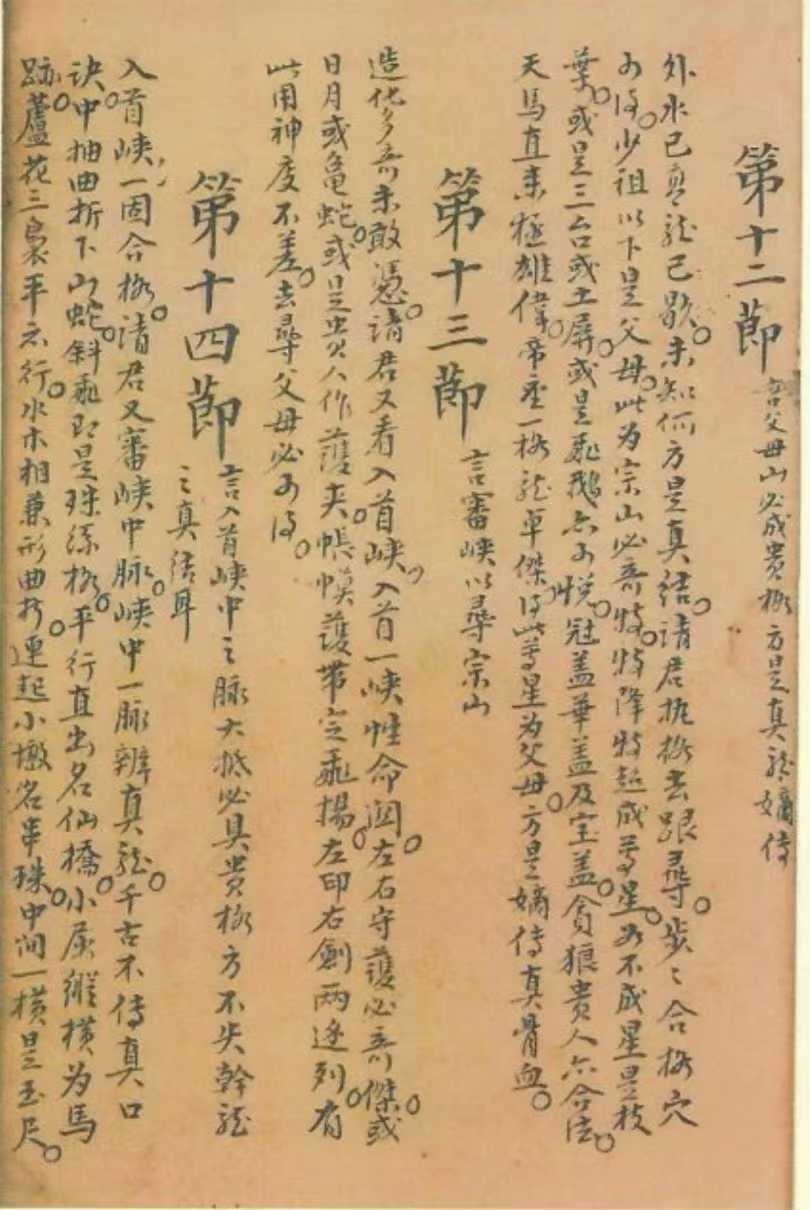 第十二節 言父母山必成貴格方是真龍嫡传
外水已真龍已歇。未知何方是真结。請君执格去跟尋。步々合格穴
可得。少祖以下是父母。此为宗山必奇特。特降特起成尊星。若不成星是枝
葉。或是三台或土屏。或是飛鵝亦可悦。冠盖華盖及宝盖。貪狼貴人亦合法。
天馬直来極雄偉。帝座一格龍卓傑。得此尊星为父母。方是嫡传真骨血。
第十三節 言審峡以尋宗山
造化多奇未敢憑。請君又看入首峡。入首一峡性命関。左右守護必奇傑。或
日月或龟蛇。或是貴人作護夹。帳幙護带定飛揚。左印右劍两边列。有
此用神度不差。去尋父母必可得。
第十四節 言入首峡中之脉大抵必具貴格方不失幹龍
之真结耳
入首峡一固合格。請君又審峡中脉。峡中一脉辨真龍。千古不传真口
诀。中抽曲折下山蛇。斜飛即是珠绦格。平行直出名仙橋。小屈縱横为馬
跡。蘆花三裊平六行。水木相兼形曲折。連起小墩名串珠。中间一横是玉尺。